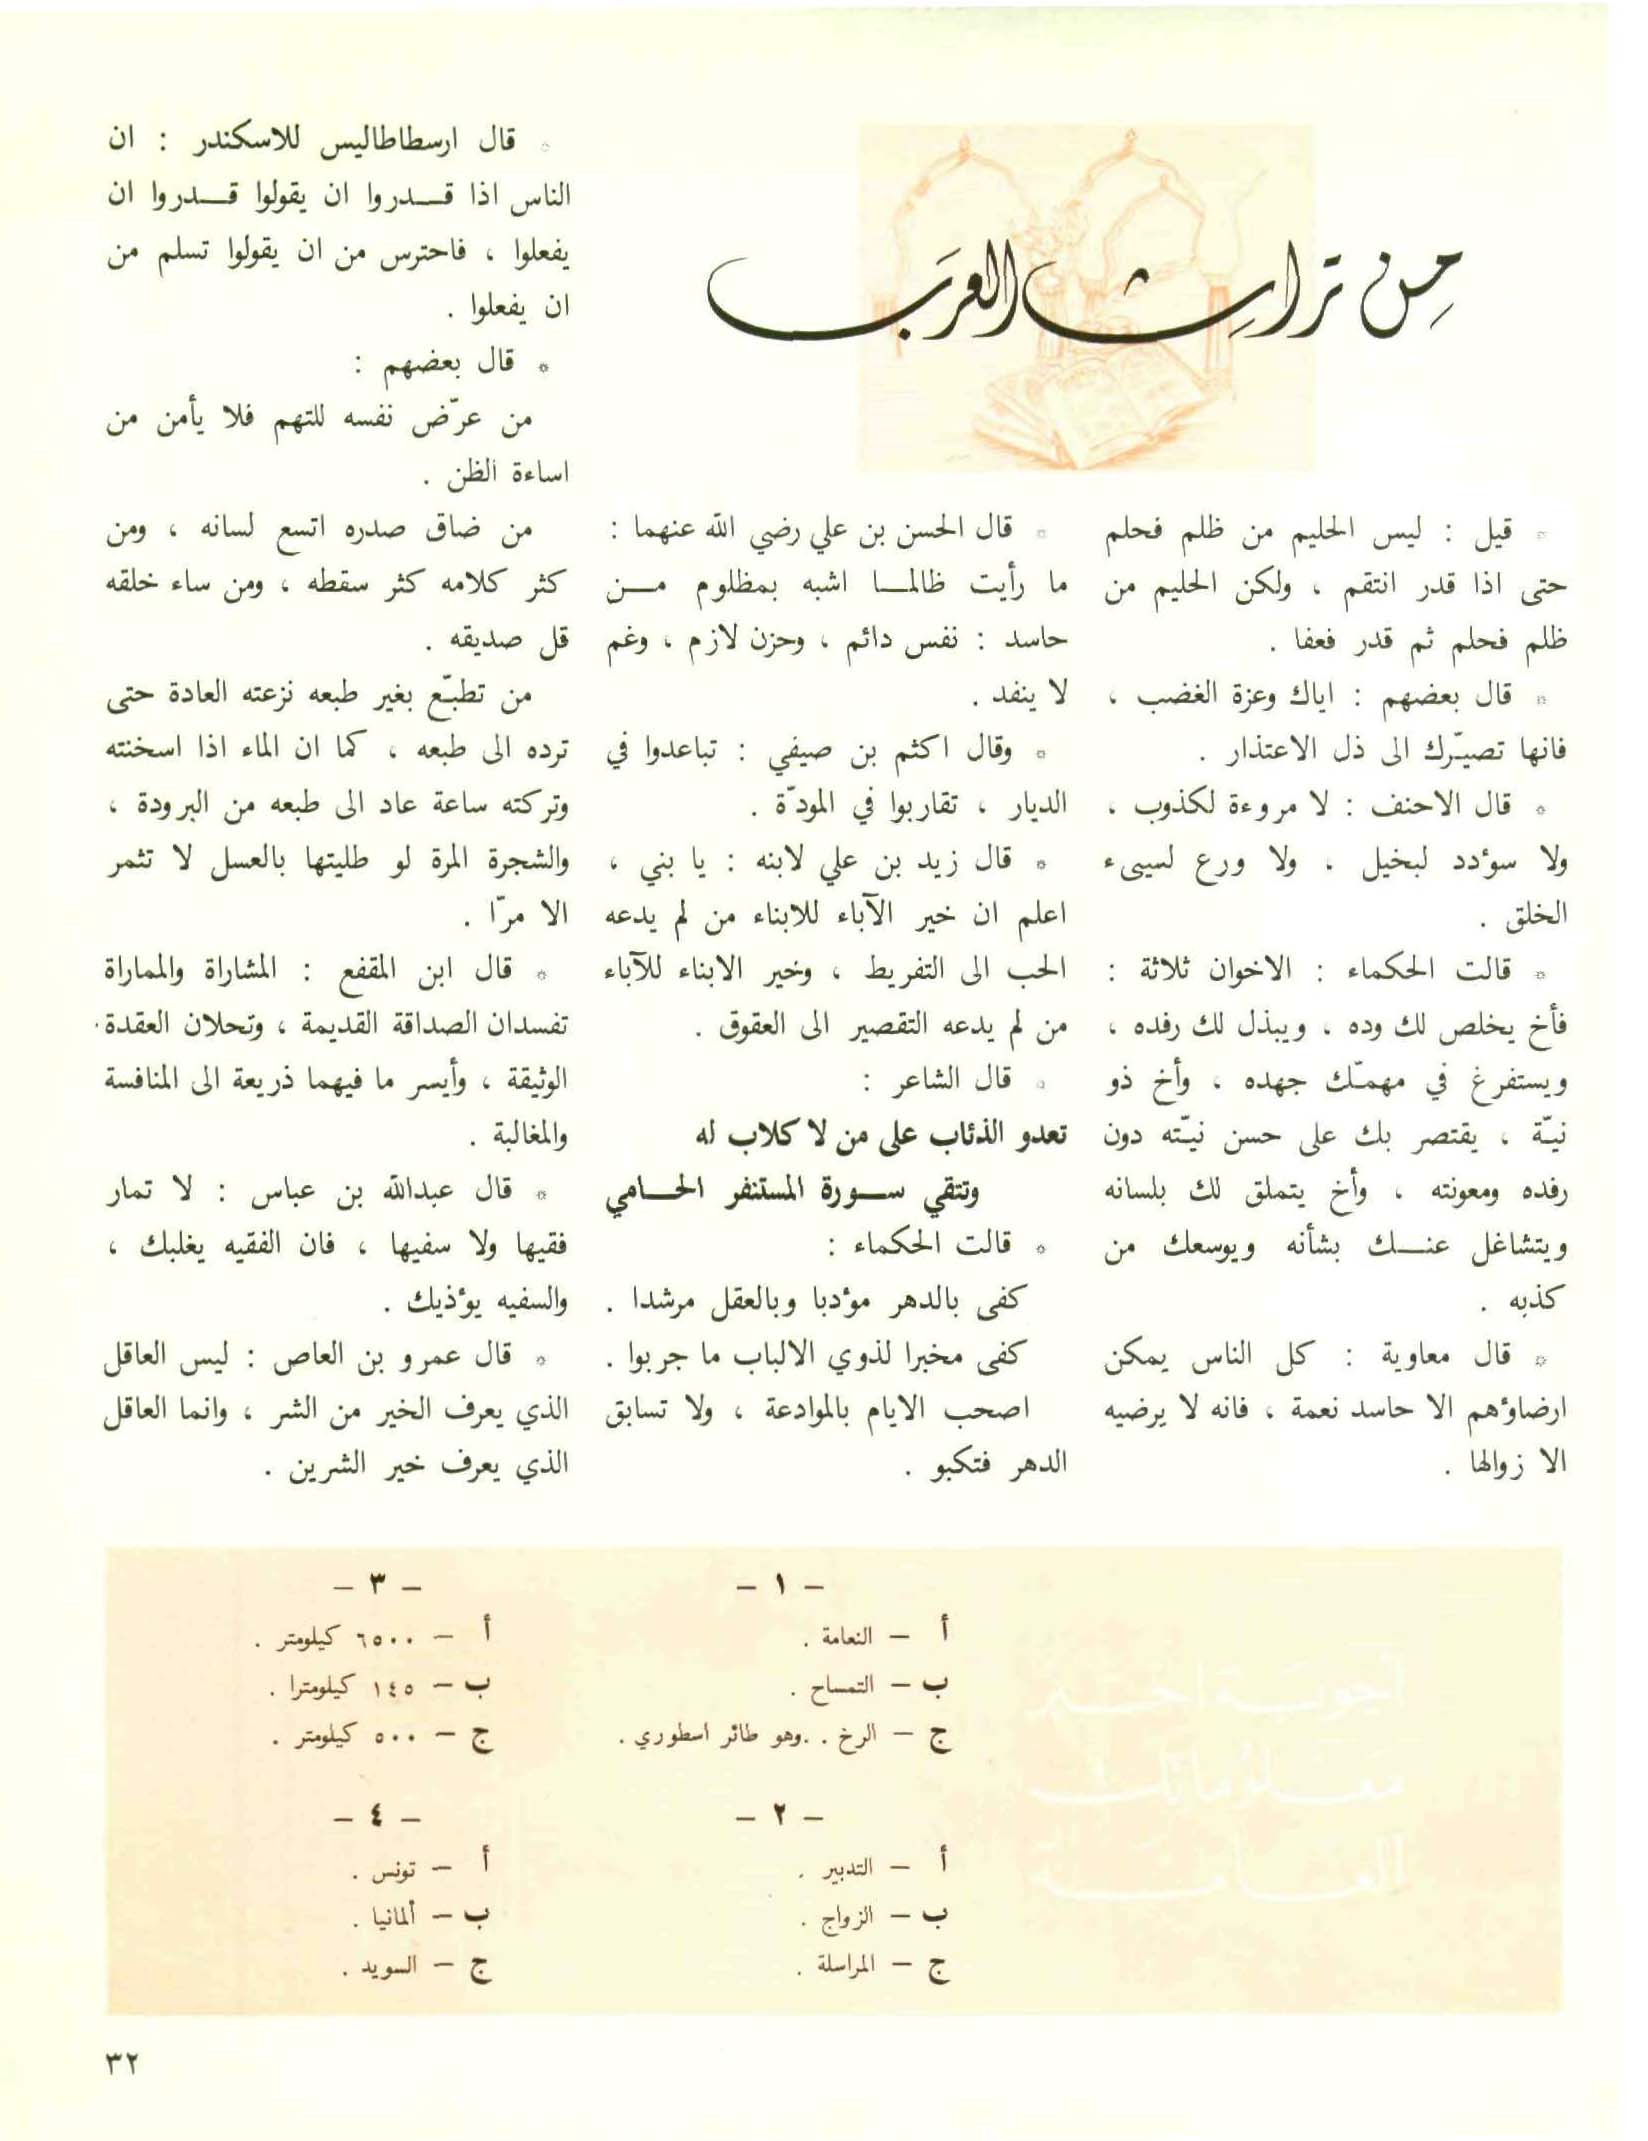 من تراث العرب
* قيل : ليس الحليم من ظلم فحلم
حتى اذا قدر انتقم ، ولكن الحليم من
ظلم فحلم ثم قدر فعفا .
* قال بعضهم : اياك وعزة الغضب ،
فانها تصيّرك الى ذل الاعتذار .
* قال الاحنف : لا مروءة لكذوب ،
ولا سوءدد لبخيل ، ولا ورع لسيىء
الخلق .
* قالت الحكماء : الاخوان ثلاثة :
فأخ يخلص لك وده ، ويبذل لك رفده ،
ويستفرغ في مهمّك جهده ، وأخ ذو
نيّة ، يقتصر بك على حسن نيّته دون
رفده ومعونته ، وأخ يتملق لك بلسانه
ويتشاغل عنــك بشأنه ويوسعك من
كذبه .
* قال معاوية : كل الناس يمكن
ارضاوءهم الا حاسد نعمة ، فانه لا يرضيه
الا زوالها .
* قال الحسن بن علي رضي الله عنهما :
ما رأيت ظالمــا اشبه بمظلوم مــن
حاسد : نفس دائم ، وحزن لازم ، وغم
لا ينفد .
* وقال اكثم بن صيفي : تباعدوا في
الديار ، تقاربوا في المودّة .
* قال زيد بن علي لابنه : يا بني ،
اعلم ان خير الآباء للابناء من لم يدعه
الحب الى التفريط ، وخير الابناء للآباء
من لم يدعه التقصير الى العقوق .
* قال الشاعر :
تعدو الذئاب على من لا كلاب له
وتتقي ســورة المستنفر الحــامي
* قالت الحكماء :
كفى بالدهر موءدبا وبالعقل مرشدا .
كفى مخبرا لذوي الالباب ما جربوا .
اصحب الايام بالموادعة ، ولا تسابق
الدهر فتكبو .
* قال ارسطاطاليس للاسكندر : ان
الناس اذا قــدروا ان يقولوا قــدروا ان
يفعلوا ، فاحترس من ان يقولوا تسلم من
ان يفعلوا .
* قال بعضهم :
من عرّض نفسه للتهم فلا يأمن من
اساءة الظن .
من ضاق صدره اتسع لسانه ، ومن
كثر كلامه كثر سقطه ، ومن ساء خلقه
قل صديقه .
من تطبّع بغير طبعه نزعته العادة حتى
ترده الى طبعه ، كما ان الماء اذا اسخنته
وتركته ساعة عاد الى طبعه من البرودة ،
والشجرة المرة لو طليتها بالعسل لا تثمر
الا مرّا .
* قال ابن المقفع : المشاراة والمماراة
تفسدان الصداقة القديمة ، وتحلان العقدة
الوثيقة ، وأيسر ما فيهما ذريعة الى المنافسة
والمغالبة .
* قال عبدالله بن عباس : لا تمار
فقيها ولا سفيها ، فان الفقيه يغلبك ،
والسفيه يوءذيك .
* قال عمرو بن العاص : ليس العاقل
الذي يعرف الخير من الشر ، وانما العاقل
الذي يعرف خير الشرين .
أجوبة اختبر
معلوماتك
العامة
– ١ –
أ – النعامة .
ب – التمساح .
ج – الرخ . .وهو طائر اسطوري .
– ٢ –
أ – التدبير .
ب – الزواج .
ج – المراسلة .
– ٣ –
أ – ٦٥٠٠ كيلومتر .
ب – ١٤٥ كيلومترا .
ج – ٥٠٠ كيلومتر .
– ٤ –
أ – تونس .
ب – ألمانيا .
ج – السويد .
٣٢